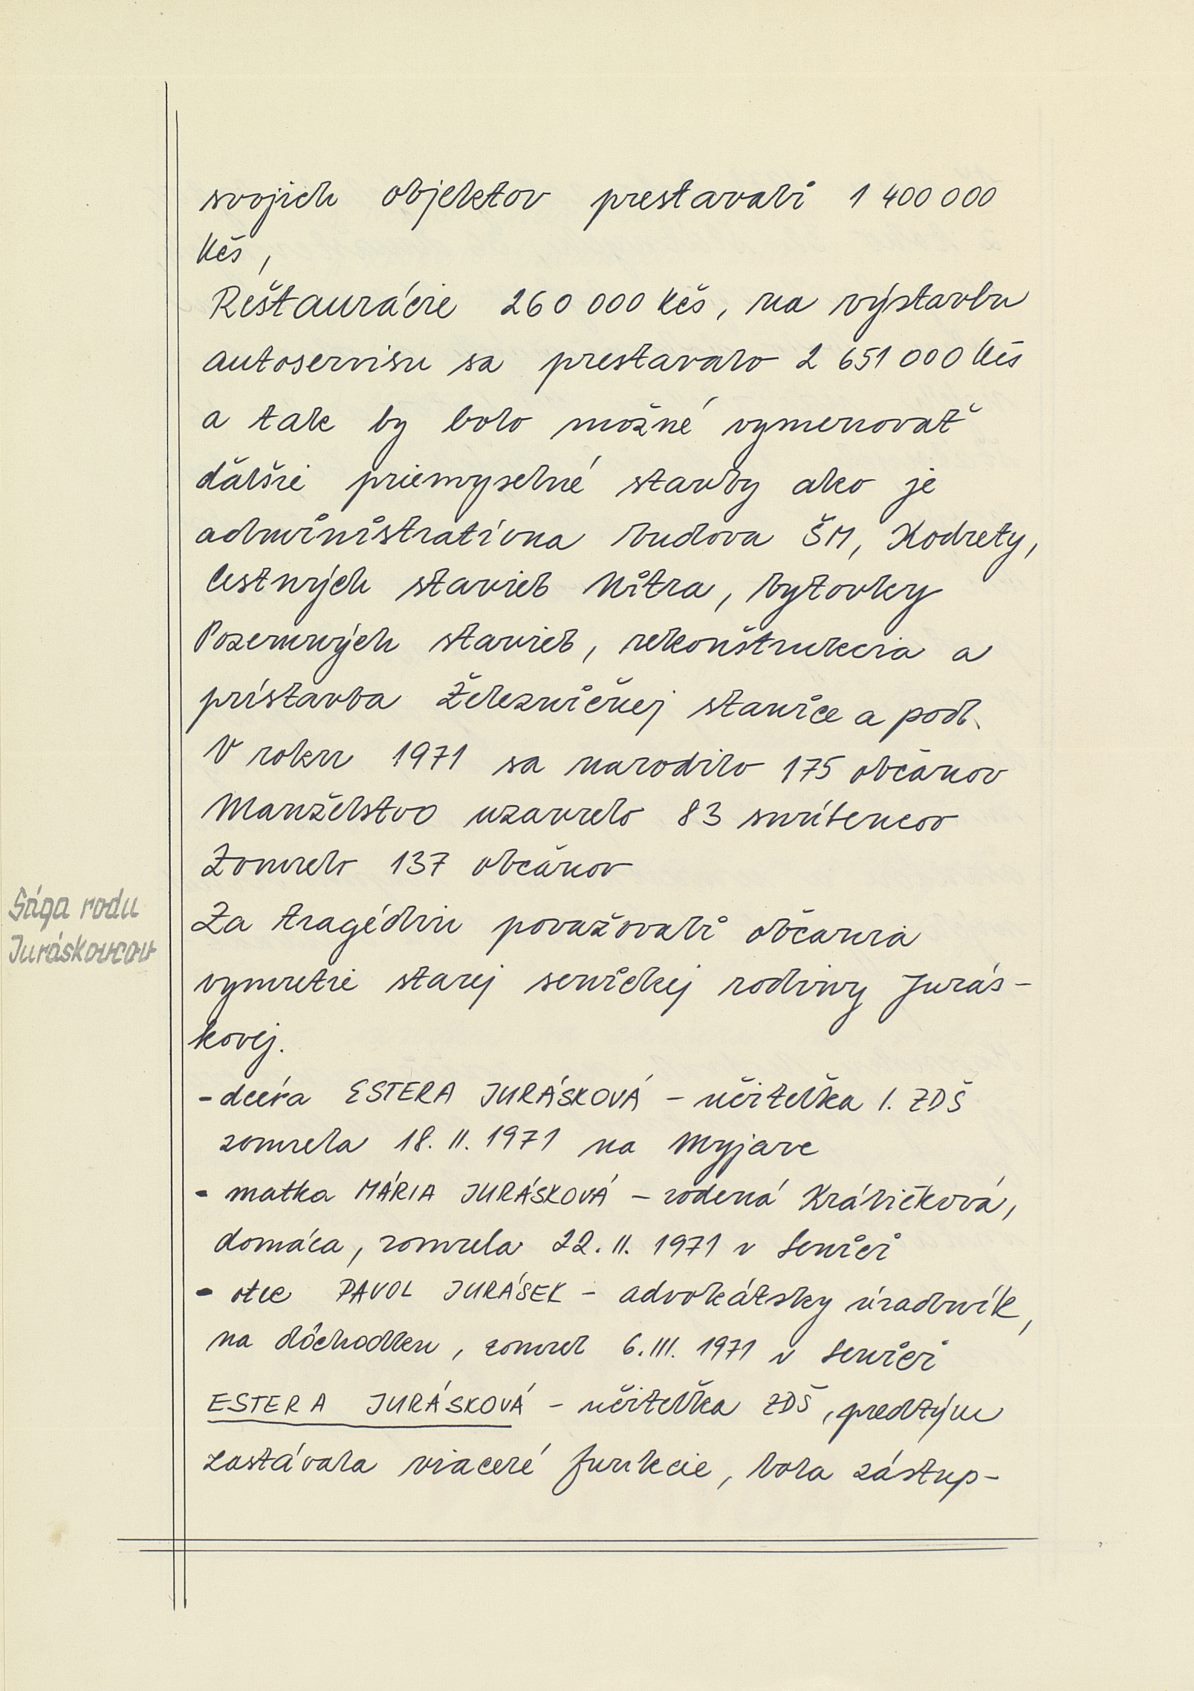 svojich objektov prestavali 1 400 000
Kčs,
Reštaurácie 260 000 Kčs, na výstavbu
autoservisu sa prestavalo 2 651 000 Kčs
a tak by bolo možné vymenovať
ďalšie priemyselné stavby ako je
administratívna budova ŠM, Kodrety,
Cestných stavieb Nitra, bytovky
Pozemných stavieb, rekonštrukcia a
prístavba Železničnej stanice a pod.
V roku 1971 sa narodilo 175 občanov
Manželstvo uzavrelo 83 snúbencov
Zomrelo 137 občanov
Sága rodu
Juráskovcov
Za tragédiu považovali občania
vymretie starej senickej rodiny Jurás-
kovej.
- dcéra ESTERA JURÁSKOVÁ - učiteľka I. ZDŠ
zomrela 18. II. 1971 na Myjave
- matka MÁRIA JURÁSKOVÁ - rodená Králičková,
domáca, zomrela 22. II. 1971 v Senici
- otec PAVOL JURÁSEK - advokátsky úradník,
na dôchodku, zomrel 6. III. 1971 v Senici
ESTERA JURÁSKOVÁ - učiteľka ZDŠ, predtým
zastávala viaceré funkcie, bola zástup-